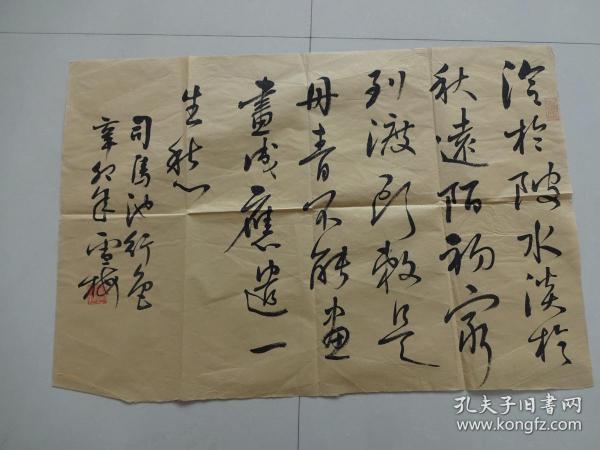 冷於陂水淡於
秋遠陌初窮
到渡頭賴是
丹青不能画
畫成應遣一
生愁
司馬池行色
辛卯年雪梅
孔夫子旧书网
www.kongfz.com